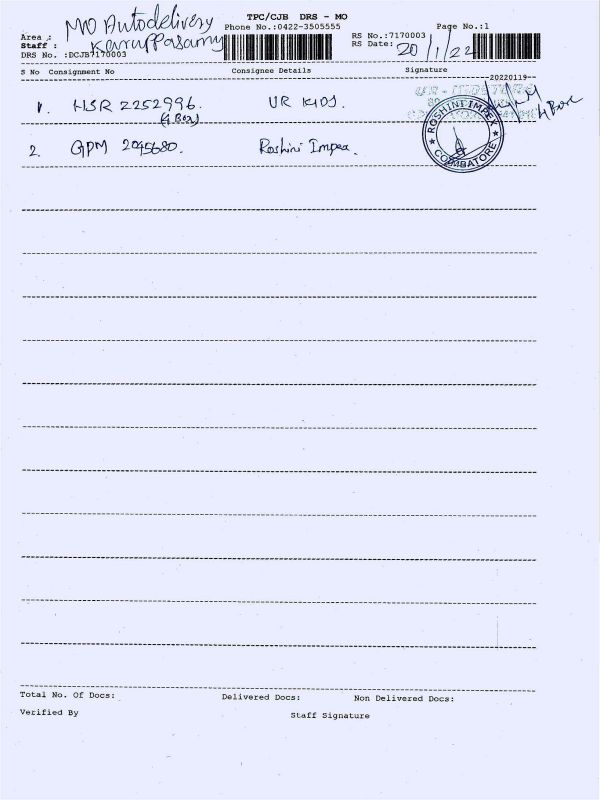 TPC/CJB DRS - MO
Area : MO Autodelivery
Phone No.:0422-3505555
Page No.:1
Staff : Karruppasamy
RS No.:7170003
DRS No. :DCJB7170003
RS Date: 20/1/22
S No Consignment No Consignee Details Signature
20220119
1. HSR 2252996. UR KIDS.
(4 Box) 4 Box
2. GPM 2045680. Roshini Impex.
ROSHINI IMPEX
COIMBATORE
Total No. Of Docs: Delivered Docs: Non Delivered Docs:
Verified By Staff Signature